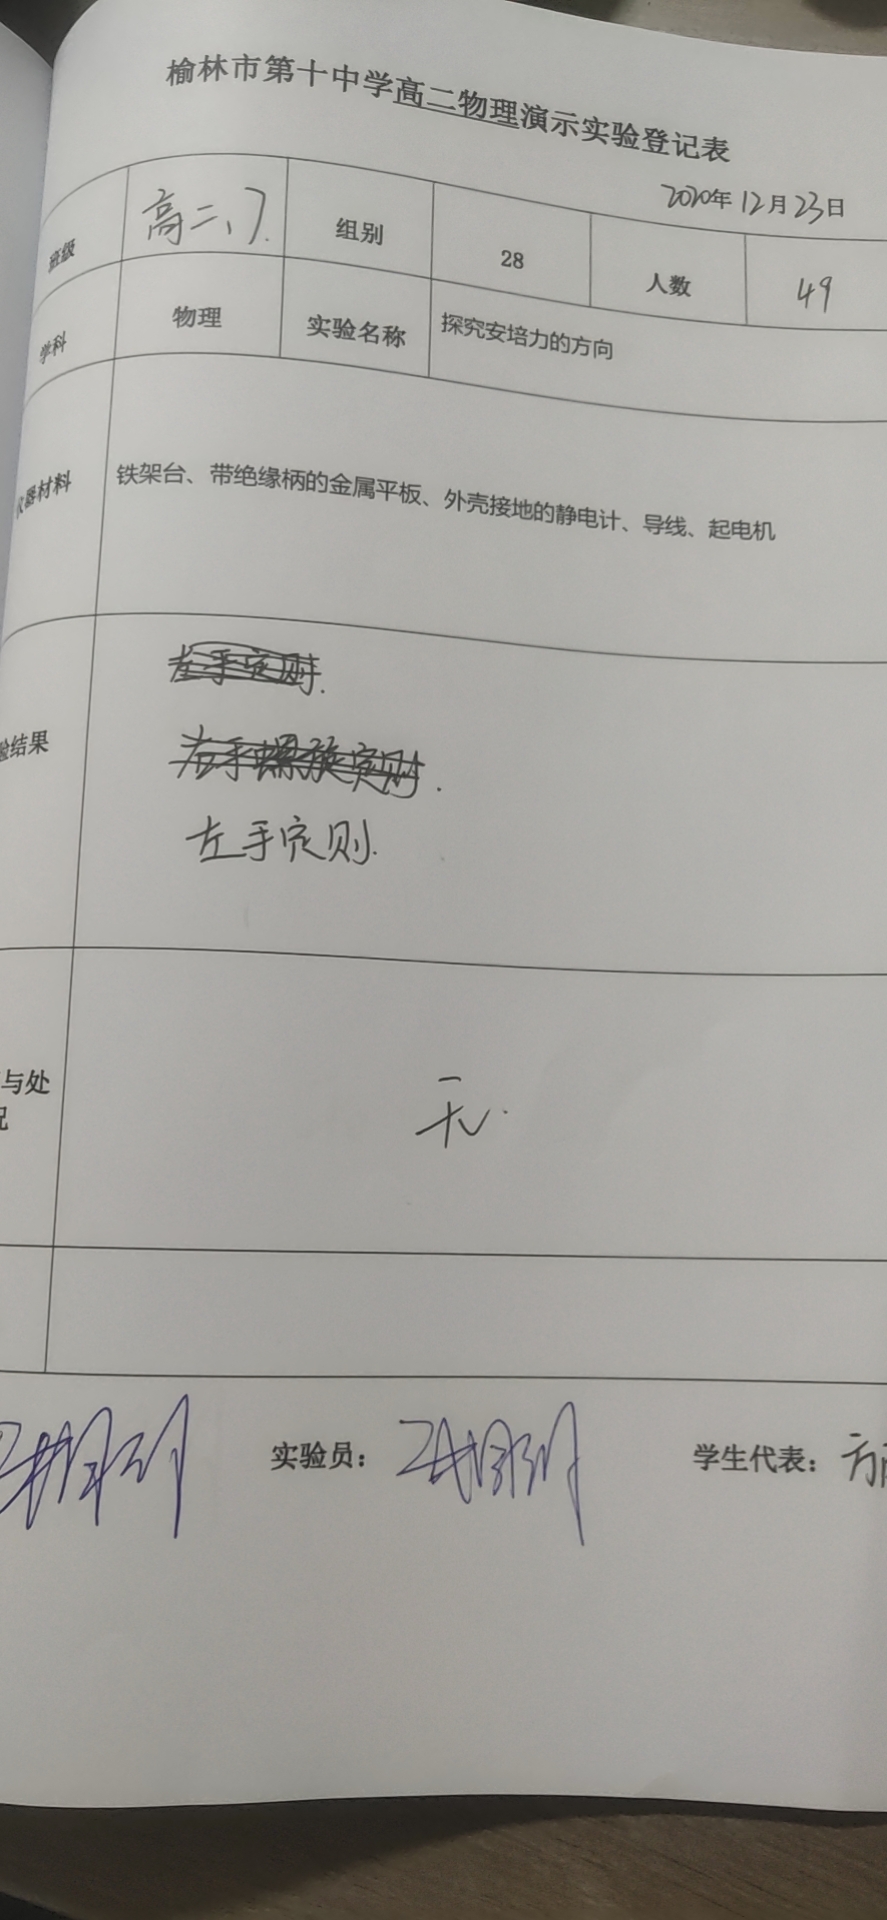 榆林市第十中学高二物理演示实验登记表
2020年12月23日
班级 高二、7. 组别 28 人数 49
学科 物理 实验名称 探究安培力的方向
仪器材料 铁架台、带绝缘柄的金属平板、外壳接地的静电计、导线、起电机
左手定则.
验结果 右手螺旋定则.
左手定则.
与处
况
无.
实验员：
学生代表：